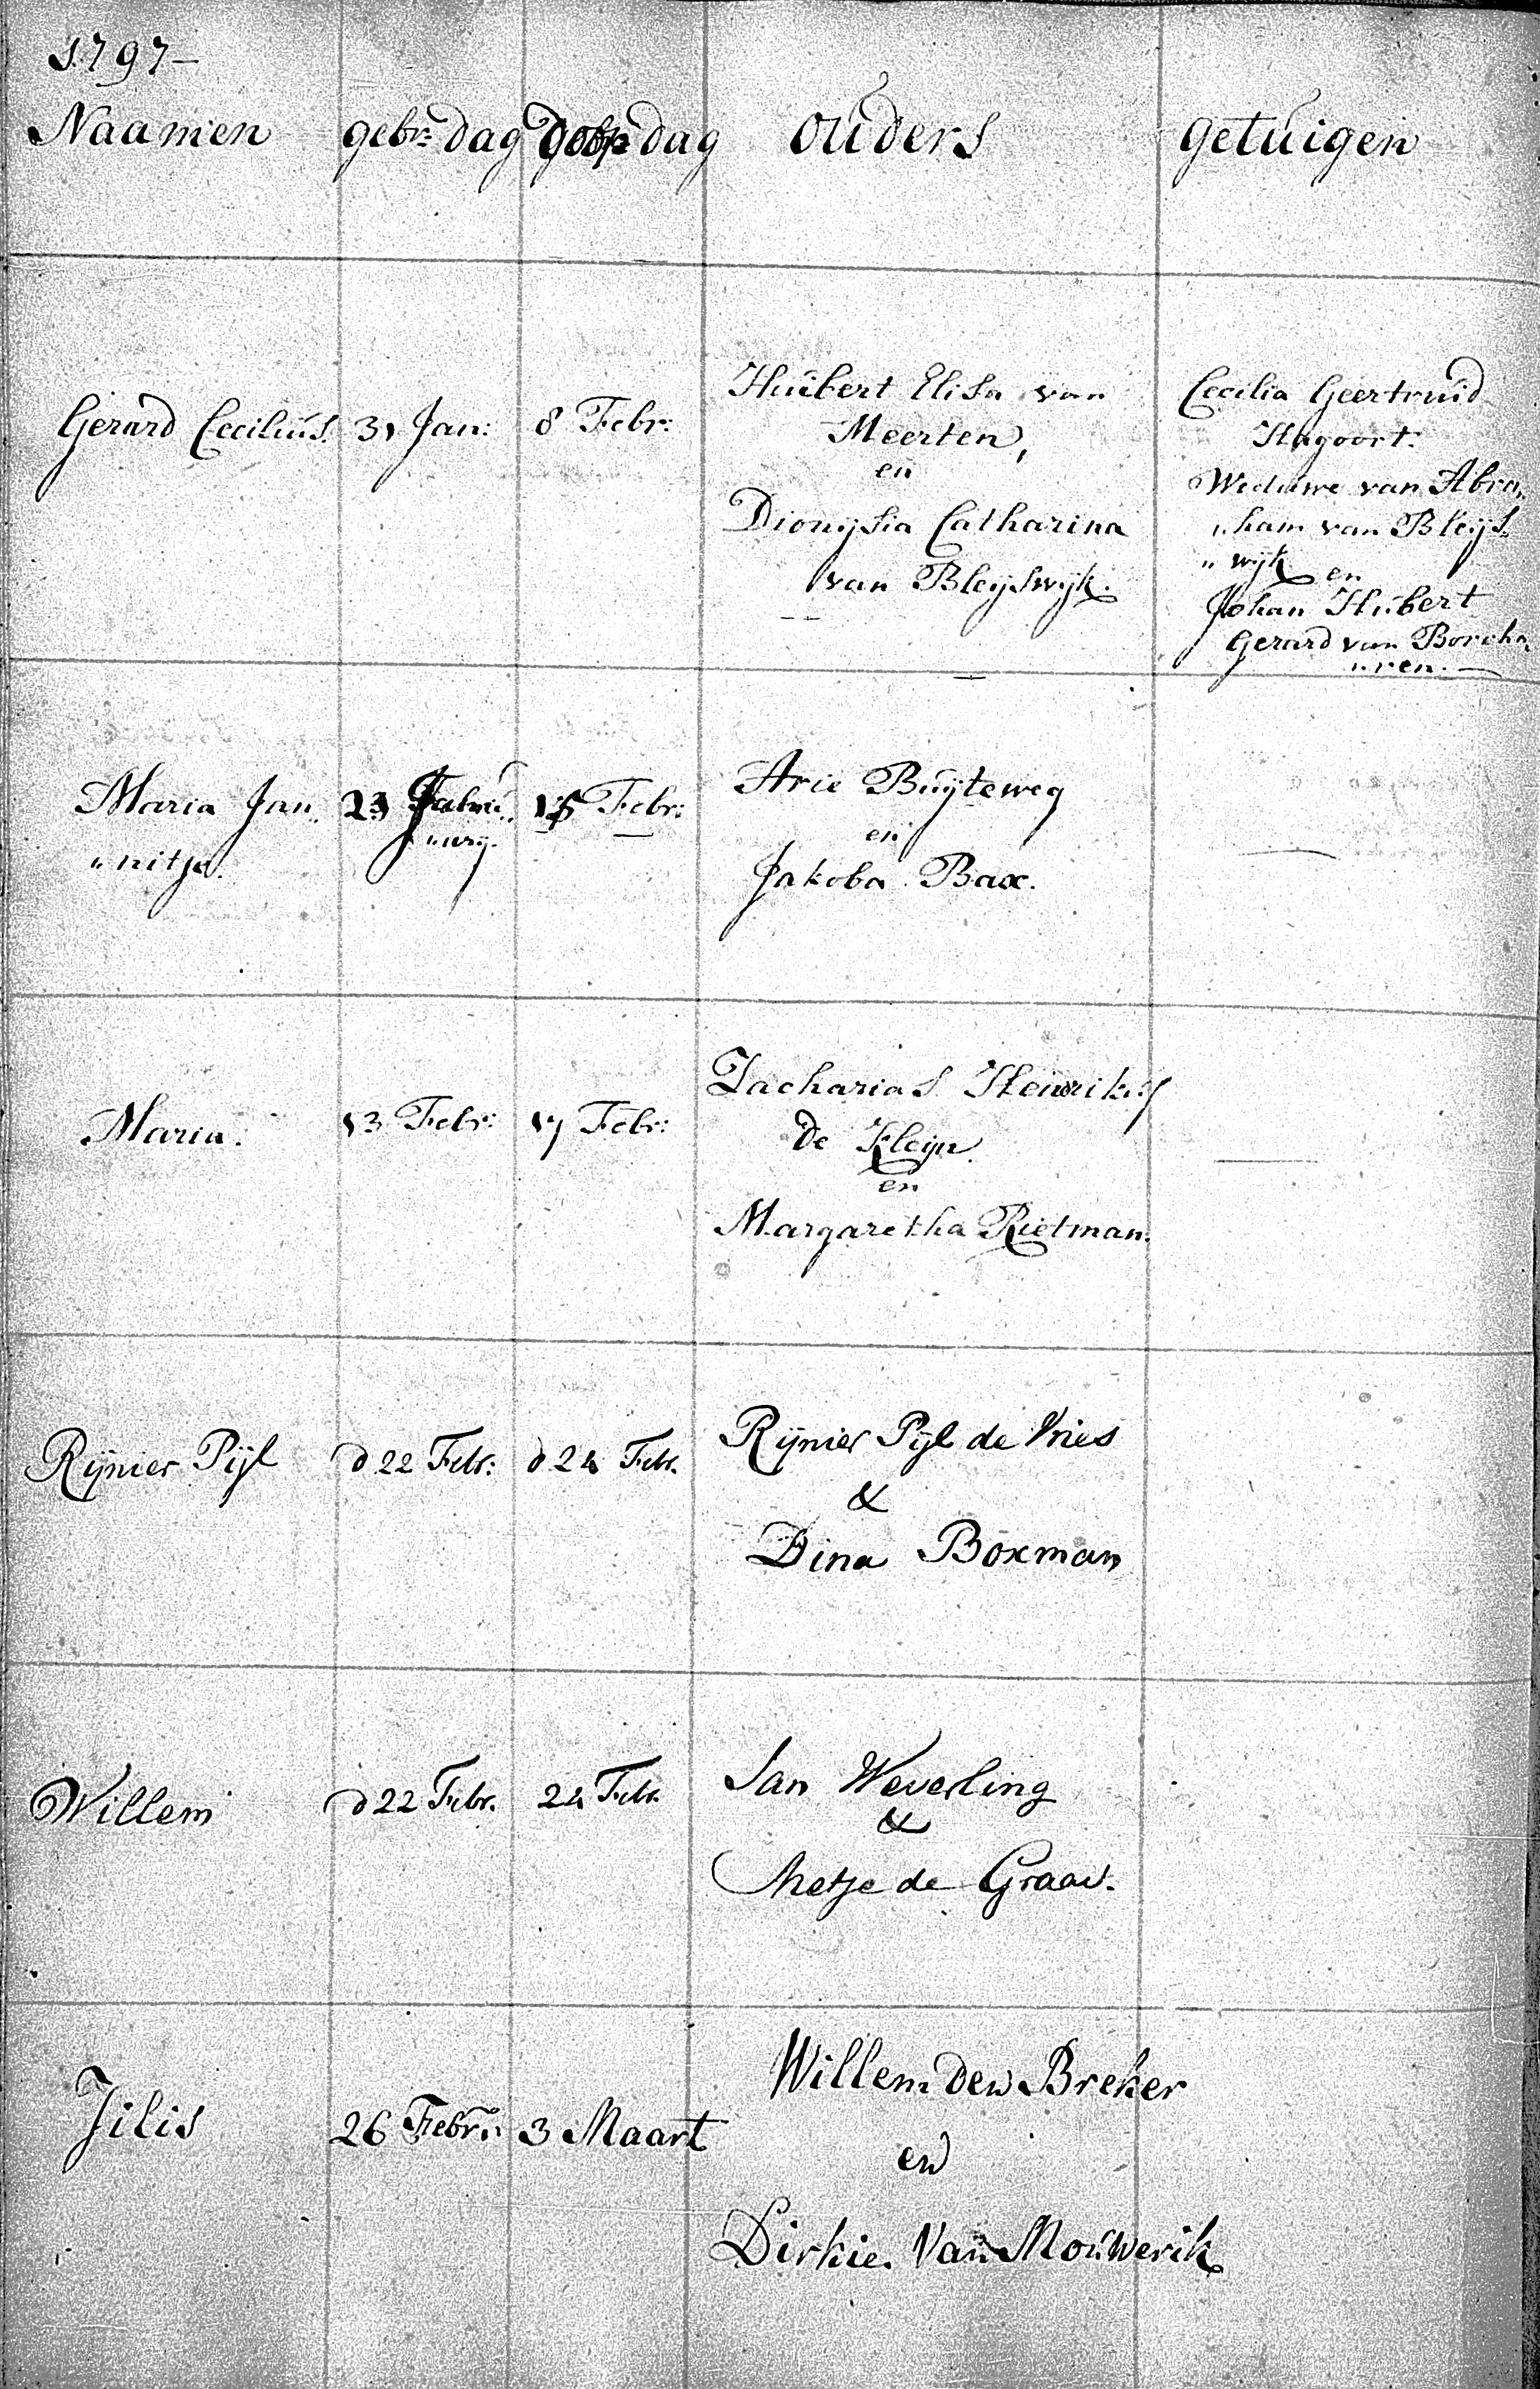 1797-
Naamen gebr: dag Doop dag ouders getuigen
Gerard Cecilius. 31 Jan: 8 Febr:
Huibert Elisa van
Meerten,
en
Dionysia Catharina
van Bleyswyk.
Cecilia Geertruid
Hagoort.
Weduwe van Abra„
„ham van Bleys„
„wyk en
Johan Hubert
Gerard van Borcha„
„ren.
Maria Jan„
„nitje.
„ary.
Febr:
Arie Buyteweg
en
Jakoba Bax.
Maria. 13 Febr: 17 Febr:
Zacharias Henrikus
de Kleyn
en
Margaretha Rietman.
Rijnier Pijl d 22 Febr: d 24 Febr.
Rijnier Pijl de Vries
&
Dina Boxman
Willem d 22 Febr. 24 Febr.
Jan Weverling
&
Metje de Graav.
Jilis 26 Febr: 3 Maart
Willem den Breker
en
Dirkie Van Mouwerik